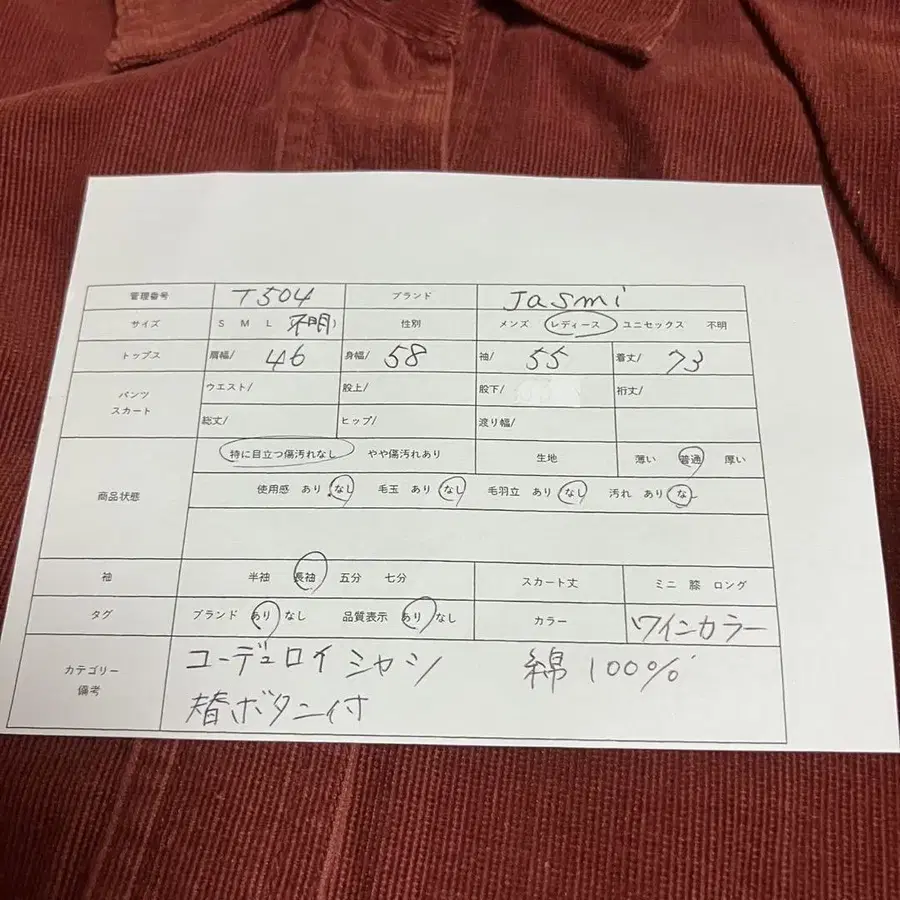 管理番号 T504 ブランド Jasmi
サイズ S M L 不明) 性別 メンズ レディース ユニセックス 不明
トップス 肩幅/ 46 身幅/ 58 袖/ 55 着丈/ 73
パンツ スカート ウエスト/ 股上/ 股下/ 裄丈/
総丈/ ヒップ/ 渡り幅/
商品状態 特に目立つ傷汚れなし やや傷汚れあり 生地 薄い 普通 厚い
使用感 あり なし 毛玉 あり なし 毛羽立 あり なし 汚れ あり な
袖 半袖 長袖 五分 七分 スカート丈 ミニ 膝 ロング
タグ ブランド あり なし 品質表示 あり なし カラー ワインカラー
カテゴリー 備考 コーデュロイシャツ 綿 100%
替ボタン付